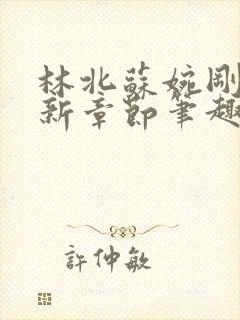 林北蘇婉剛
新章節筆趣
許仲敏